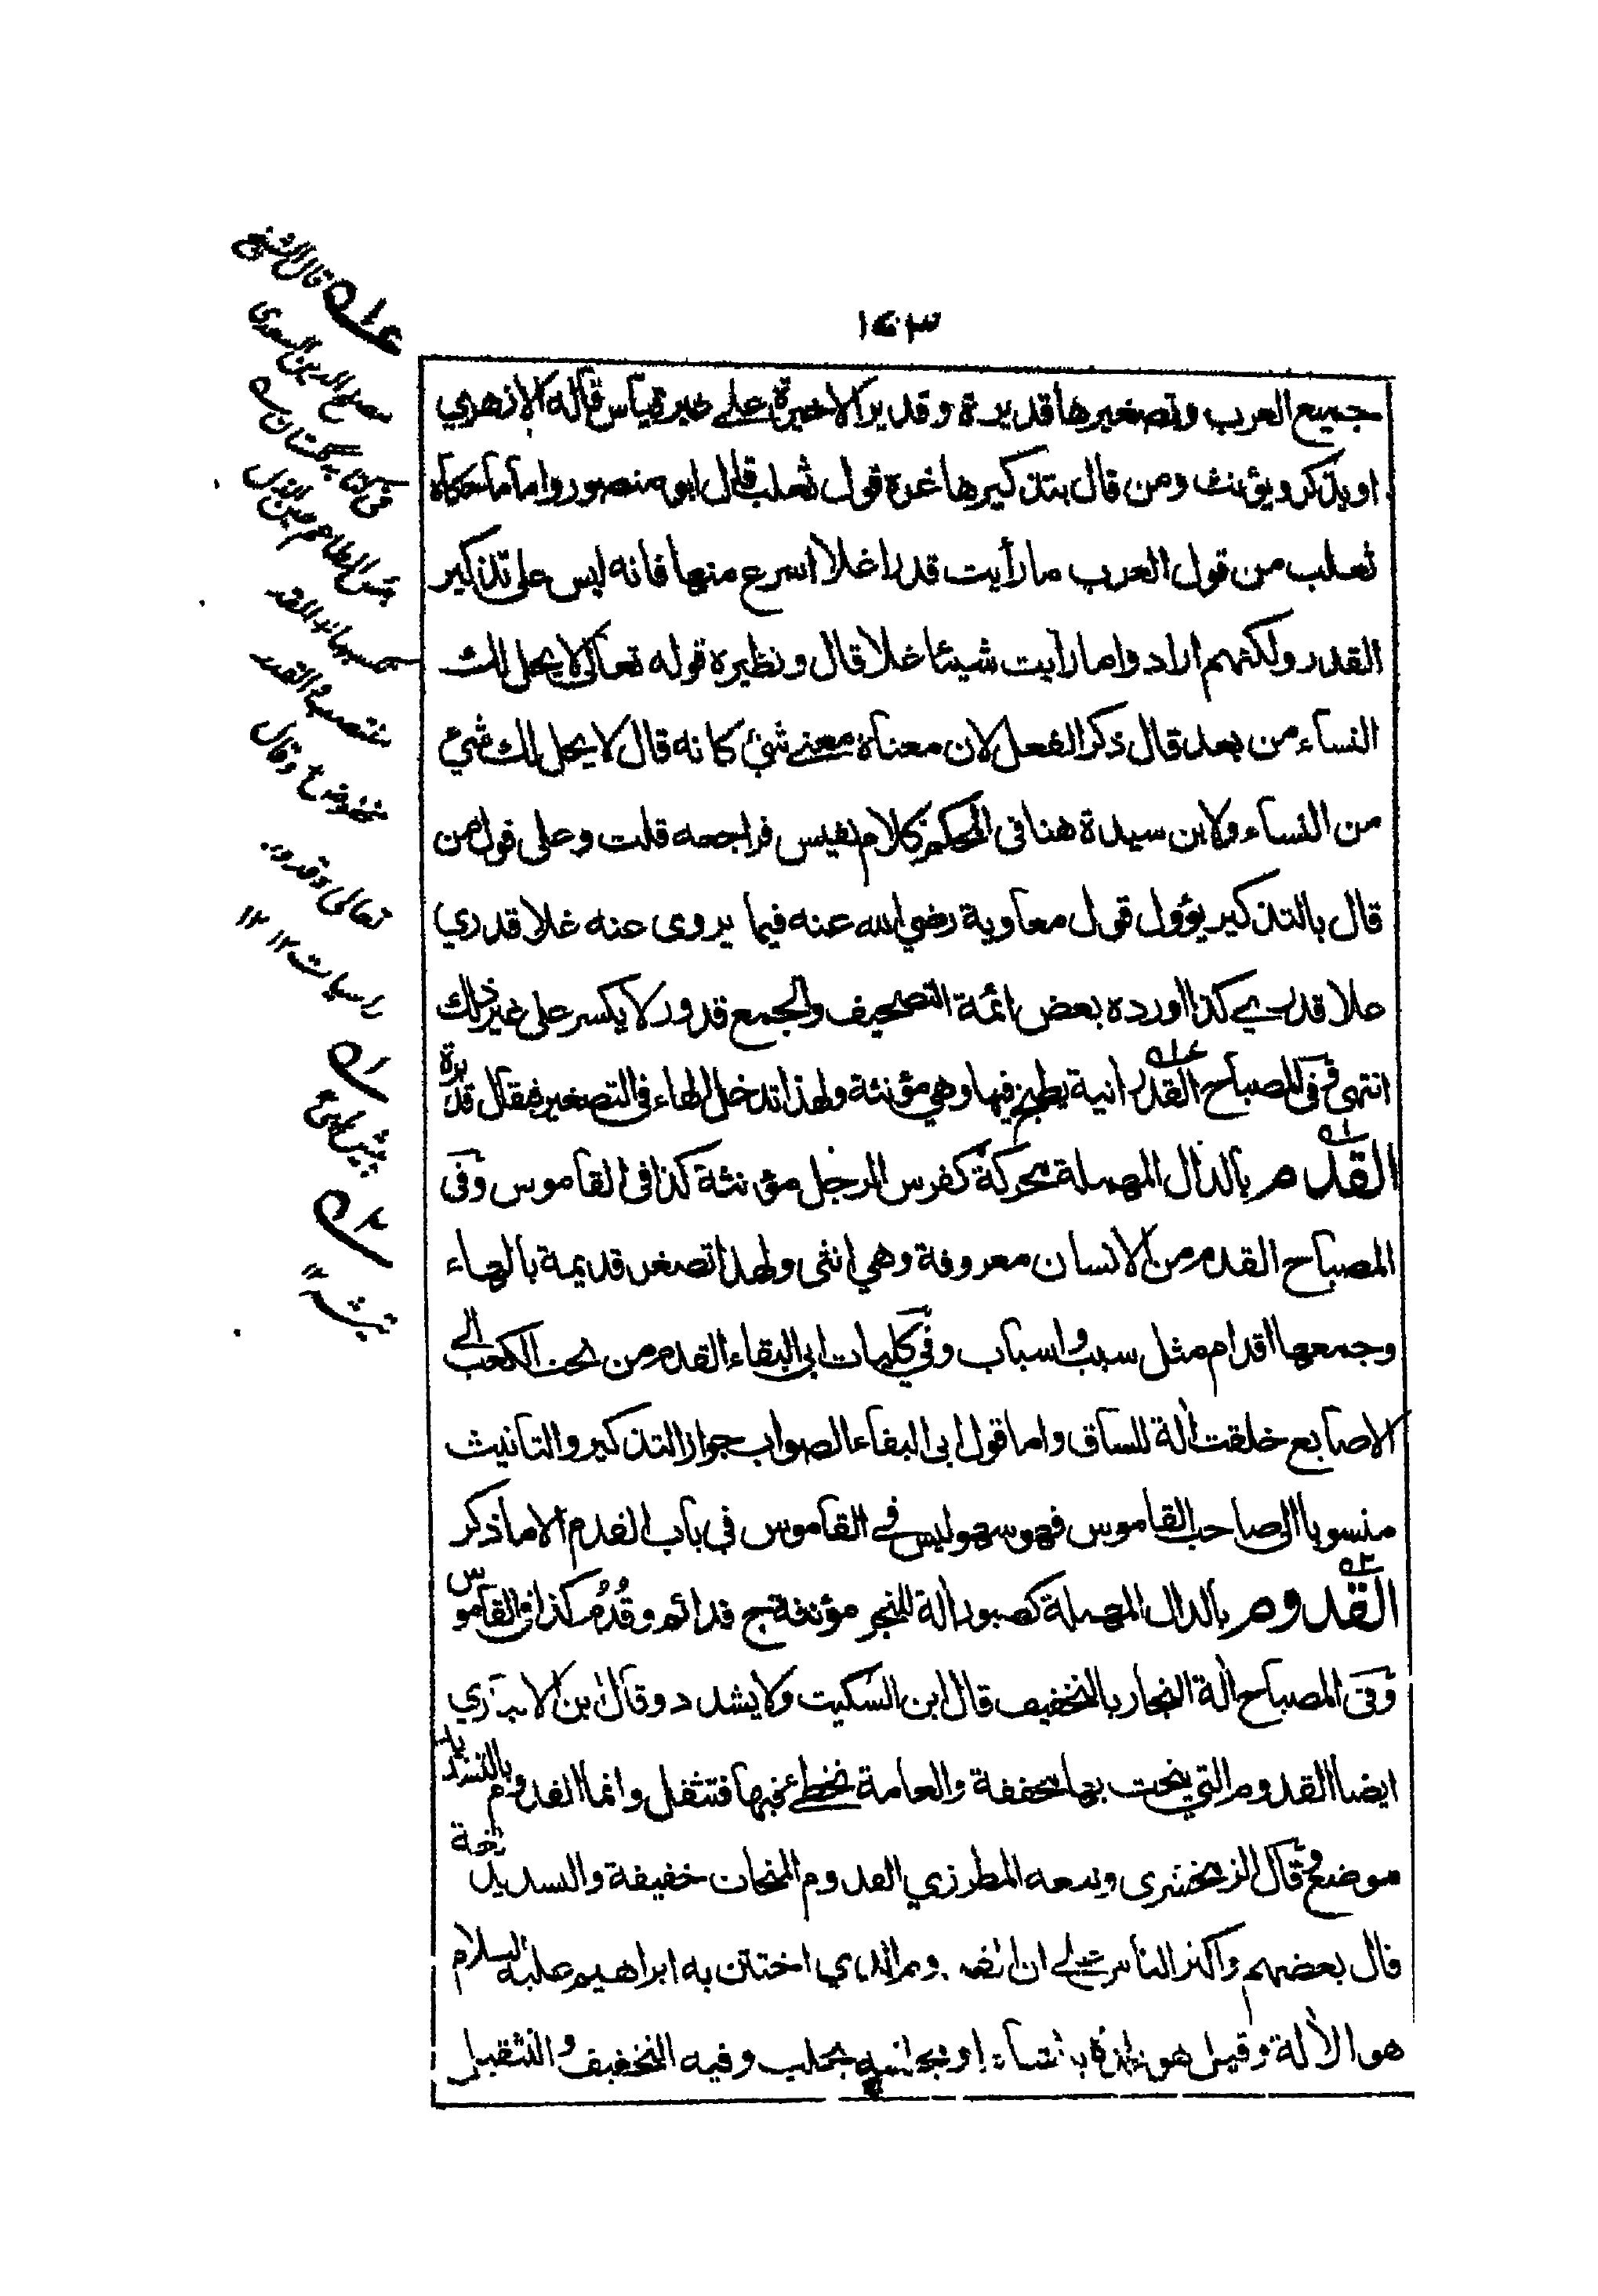 ١٤٣
جميع العرب وتصغيرها قديرة وقدير الاخيرة على غير قياس قاله الازهري
او يذكر ويؤنث ومن قال بتذكيرها غره قول ثعلب قال ابو منصور واما ما حكاه
ثعلب من قول العرب ما رأيت قدرا غلا اسرع منها فانه ليس على تذكير
القدر ولكنهم ارادوا ما رأيت شيئا غلا قال ونظيره قوله تعالى لا يحل لك
النساء من بعد قال ذكر الفعل لان معناه معنى شئ كانه قال لا يحل لك شيء
من النساء ولابن سيدة هنا في المحكم كلام نفيس فراجعه قلت وعلى قول من
قال بالتذكير يؤول قول معاوية رضي الله عنه فيما يروى عنه غلا قدري
علا قدري كذا اورده بعض ائمة التصحيف والجمع قدور لا يكسر على غير ذلك
انتهى وفي المصباح القدر انية يطبخ فيها وهي مؤنثة ولهذا تدخل الهاء في التصغير فيقال قديرة
القدم بالدال المهملة محركة كفرس الرجل مؤنثة كذا في القاموس وفي
المصباح القدم من الانسان معروفة وهي انثى ولهذا تصغر قديمة بالهاء
وجمعها اقدام مثل سبب واسباب وفي كليات ابي البقاء القدم من تحت الكعب الى
الاصابع خلقت الة للساق واما قول ابي البقاء الصواب جواز التذكير والتانيث
منسوبا الى صاحب القاموس فهو سهو ليس في القاموس في باب القدم الا ما ذكر
القدوم بالدال المهملة كصبور الة للنجر مؤنثة ج قدائم وقُدُم كذا في القاموس
وفي المصباح الة النجار بالتخفيف قال ابن السكيت ولا يشدد وقال ابن الانباري
ايضا القدوم التي ينحت بها مخففة والعامة تخطئ فيها فتثقل وانما القدوم بالتشديد
موضع وقال الزمخشري وتبعه المطرزي القدوم المنحات خفيفة والتشديد لغة
قال بعضهم واكثر الناس على ان القدوم الذي اختتن به ابراهيم عليه السلام
هو الالة وقيل هو بلدة بالشام او مجلسه بحلب وفيه التخفيف والتثقيل
قال الشيخ
مصلح الدين السعدي
في گلستان
بئس المطاعم حين الذل
تكسبها القدر
منتصب والقدر
مخفوض وقال
تعالى وقدور
راسيات ١٢ ١٢
١
٢
تيشه ١٢